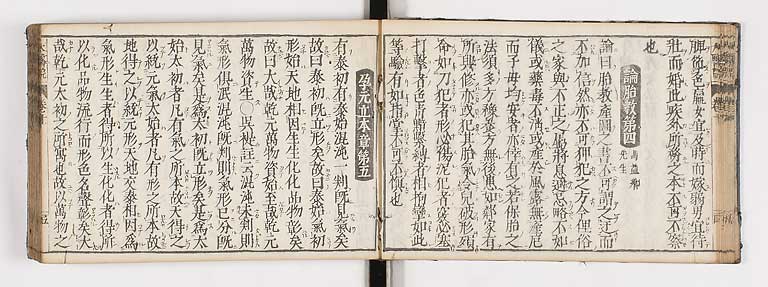 脾節色羸女宜及時而嫁弱男宜待
壯而婚此疾外所務之本不可不察
也
論胎教第四 馬益卿先生
論曰胎教產圖之書不可謂之迂而
不加信然亦不可狎犯之方今俚俗
之家與不正之屬將息避忌略不如
儀或藥毒不消或產於風露無產厄
而子母均安者亦倖有之若保胎之
法須多方穩審方無後患如鄰家有
所興修亦或犯其胎氣令兒破形殞
命如刀犯者形必傷泥犯者竅必塞
打擊者色青黯繫縛者相拘攣如此
等驗有如指掌不可不慎也
孕元立本章第五
有泰初有泰始混沌一判既見氣矣
故曰泰初既立形矣故曰泰始氣初
形始天地相因生生化化品物彰矣
故曰大哉乾元萬物資始至哉坤元
萬物資生○吳註云混沌未判則
氣形俱泯混沌既判則氣形已分既
見氣矣是為太初既立形矣是為太
始太初者凡有氣之所本故天得之
以統元氣太始者凡有形之所本故
地得之以統元形天地交泰相因為
氣形生生者得所以生化化者得所
以化品物流行而形色名聲彰矣大
哉乾元太初之所寓也故以萬物之